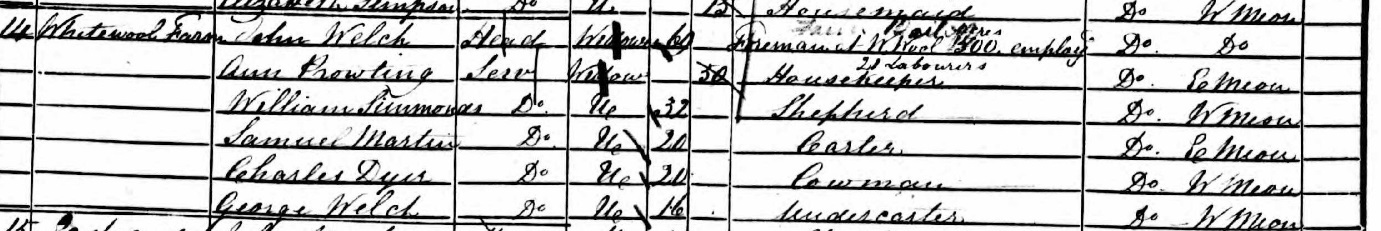 Elizabeth Simpson Do U 15 Housemaid Do W Meon
14 Whitewool Farm John Welch Head Widower 60 Foreman at W. Wool 500 acres employ Do Do
28 Labourers
Ann Prowting Serv Widow 50 Housekeeper Do. Et Meon
William Simmonds Do. U 32 Shepherd Do. W Meon
Samuel Martin Do U 20 Carter Do. Et Meon
Charles Dyer Do U 20 Cowman Do W Meon
George Welch Do U 16 Undercarter Do W Meon
15